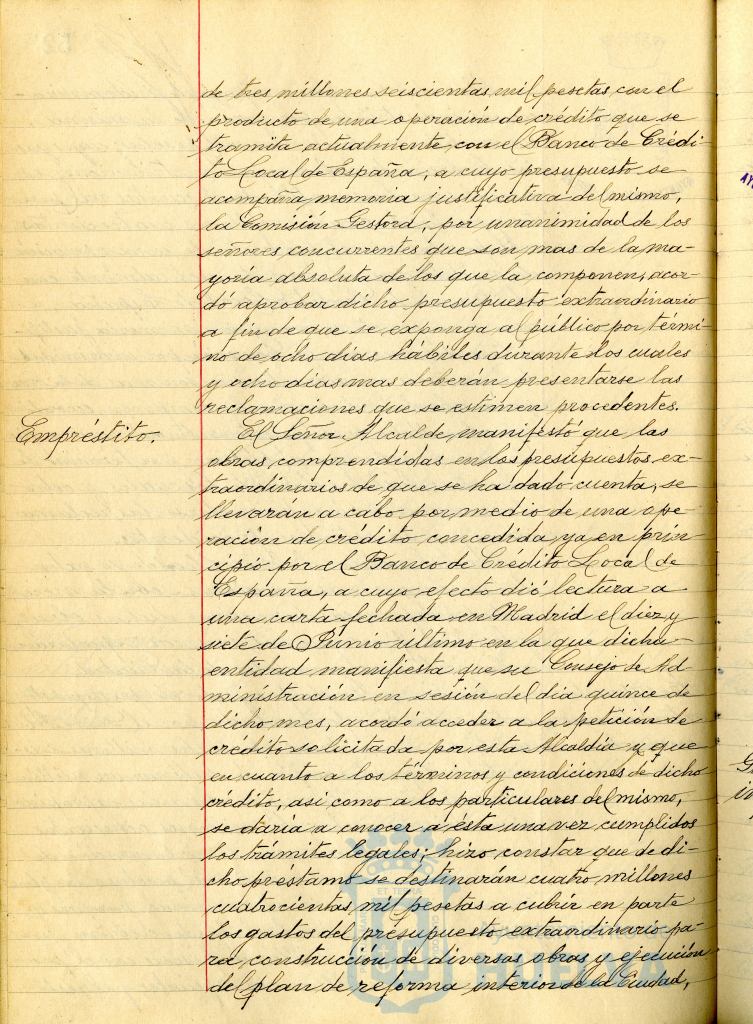 de tres millones seiscientas mil pesetas con el
producto de una operación de crédito que se
tramita actualmente con el Banco de Crédi-
to Local de España, a cuyo presupuesto se
acompaña memoria justificativa del mismo,
la Comisión Gestora, por unanimidad de los
señores concurrentes que son mas de la ma-
yoria absoluta de los que la componen, acor-
dó aprobar dicho presupuesto extraordinario
a fin de que se exponga al público por térmi-
no de ocho dias hábiles durante los cuales
y ocho dias mas deberán presentarse las
reclamaciones que se estimen procedentes.
Empréstito.
El Señor Alcalde manifestó que las
obras comprendidas en los presupuestos ex-
traordinarios de que se ha dado cuenta, se
llevarán a cabo por medio de una ope-
ración de crédito concedida ya en prin-
cipio por el Banco de Crédito Local de
España, a cuyo efecto dió lectura a
una carta fechada en Madrid el diez y
siete de Junio último en la que dicha
entidad manifiesta que su Consejo de Ad-
ministración en sesión del dia quince de
dicho mes, acordó acceder a la petición de
crédito solicitada por esta Alcaldía y que
en cuanto a los términos y condiciones de dicho
crédito, asi como a los particulares del mismo,
se daría a conocer a ésta una vez cumplidos
los trámites legales; hizo constar que de di-
cho préstamo se destinarán cuatro millones
cuatrocientas mil pesetas a cubrir en parte
los gastos del presupuesto extraordinario pa-
ra construcción de diversas obras y ejecución
del plan de reforma interior de la Ciudad,
HUELVA